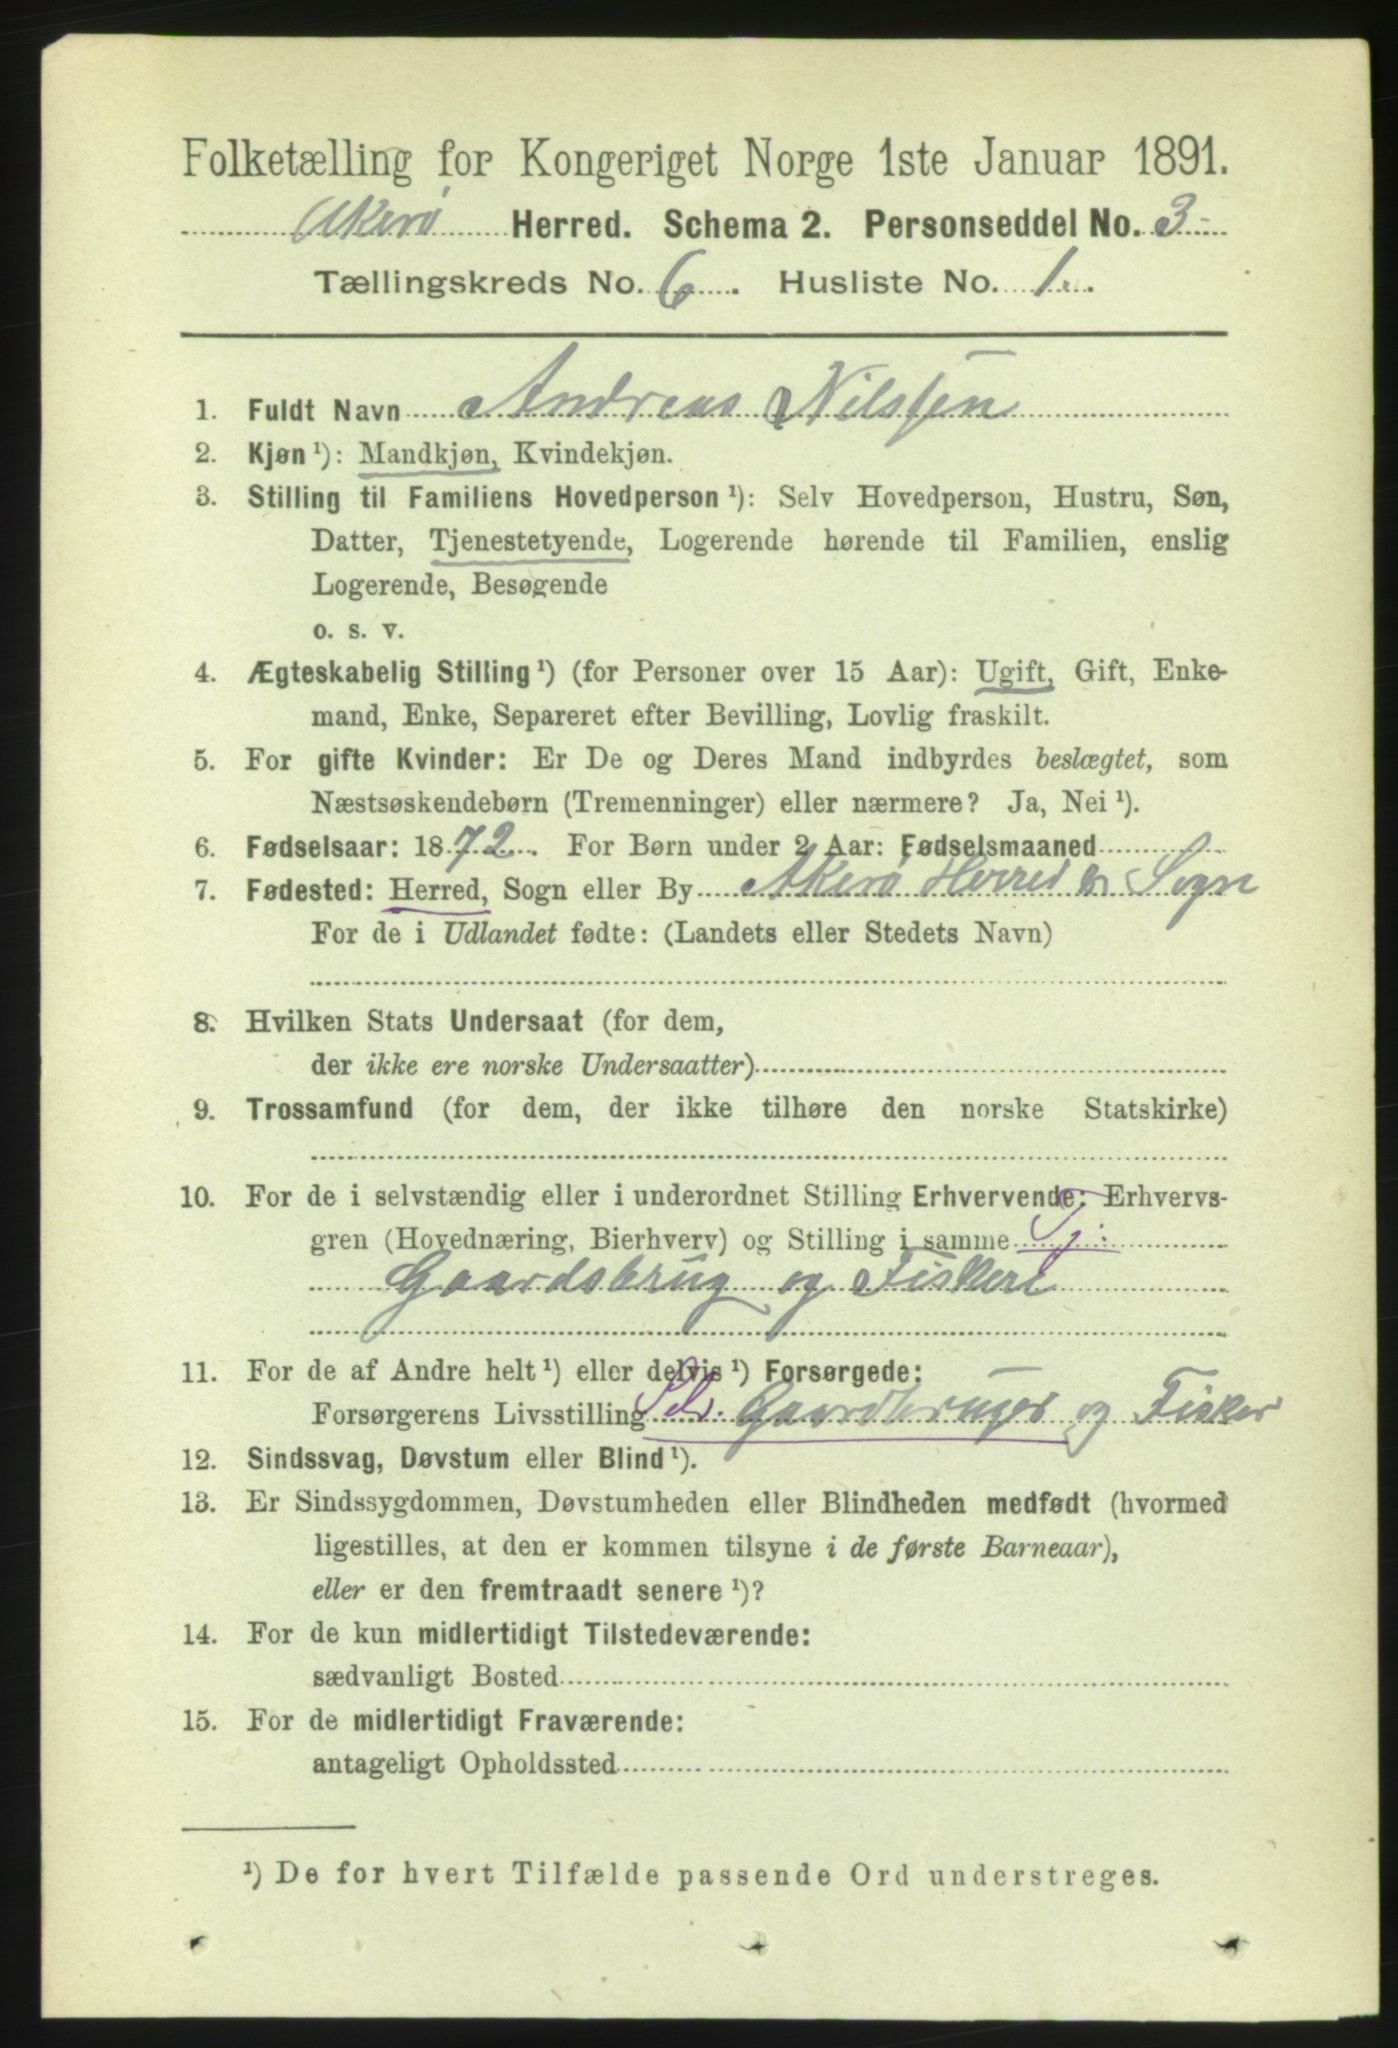 Folketælling for Kongeriget Norge 1ste Januar 1891.
Akerø Herred. Schema 2. Personseddel No. 3
Tællingskreds No. 6. Husliste No. 1.
1. Fuldt Navn Andreas Nilssen
2. Kjøn ¹): Mandkjøn, Kvindekjøn.
3. Stilling til Familiens Hovedperson ¹): Selv Hovedperson, Hustru, Søn,
Datter, Tjenestetyende, Logerende hørende til Familien, enslig
Logerende, Besøgende
o. s. v.
4. Ægteskabelig Stilling ¹) (for Personer over 15 Aar): Ugift, Gift, Enke-
mand, Enke, Separeret efter Bevilling, Lovlig fraskilt.
5. For gifte Kvinder: Er De og Deres Mand indbyrdes beslægtet, som
Næstsøskendebørn (Tremenninger) eller nærmere? Ja, Nei ¹).
6. Fødselsaar: 1872. For Børn under 2 Aar: Fødselsmaaned
7. Fødested: Herred, Sogn eller By Akerø Herred & Sogn
For de i Udlandet fødte: (Landets eller Stedets Navn)
8. Hvilken Stats Undersaat (for dem,
der ikke ere norske Undersaatter)
9. Trossamfund (for dem, der ikke tilhøre den norske Statskirke)
10. For de i selvstændig eller i underordnet Stilling Erhvervende: Erhvervs-
gren (Hovednæring, Bierhverv) og Stilling i samme Tj:
Gaardsbrug og Fiskeri
11. For de af Andre helt ¹) eller delvis ¹) Forsørgede:
Forsørgerens Livsstilling Selv. Gaardbruger og Fisker
12. Sindssvag, Døvstum eller Blind ¹).
13. Er Sindssygdommen, Døvstumheden eller Blindheden medfødt (hvormed
ligestilles, at den er kommen tilsyne i de første Barneaar),
eller er den fremtraadt senere ¹)?
14. For de kun midlertidigt Tilstedeværende:
sædvanligt Bosted
15. For de midlertidigt Fraværende:
antageligt Opholdssted
¹) De for hvert Tilfælde passende Ord understreges.